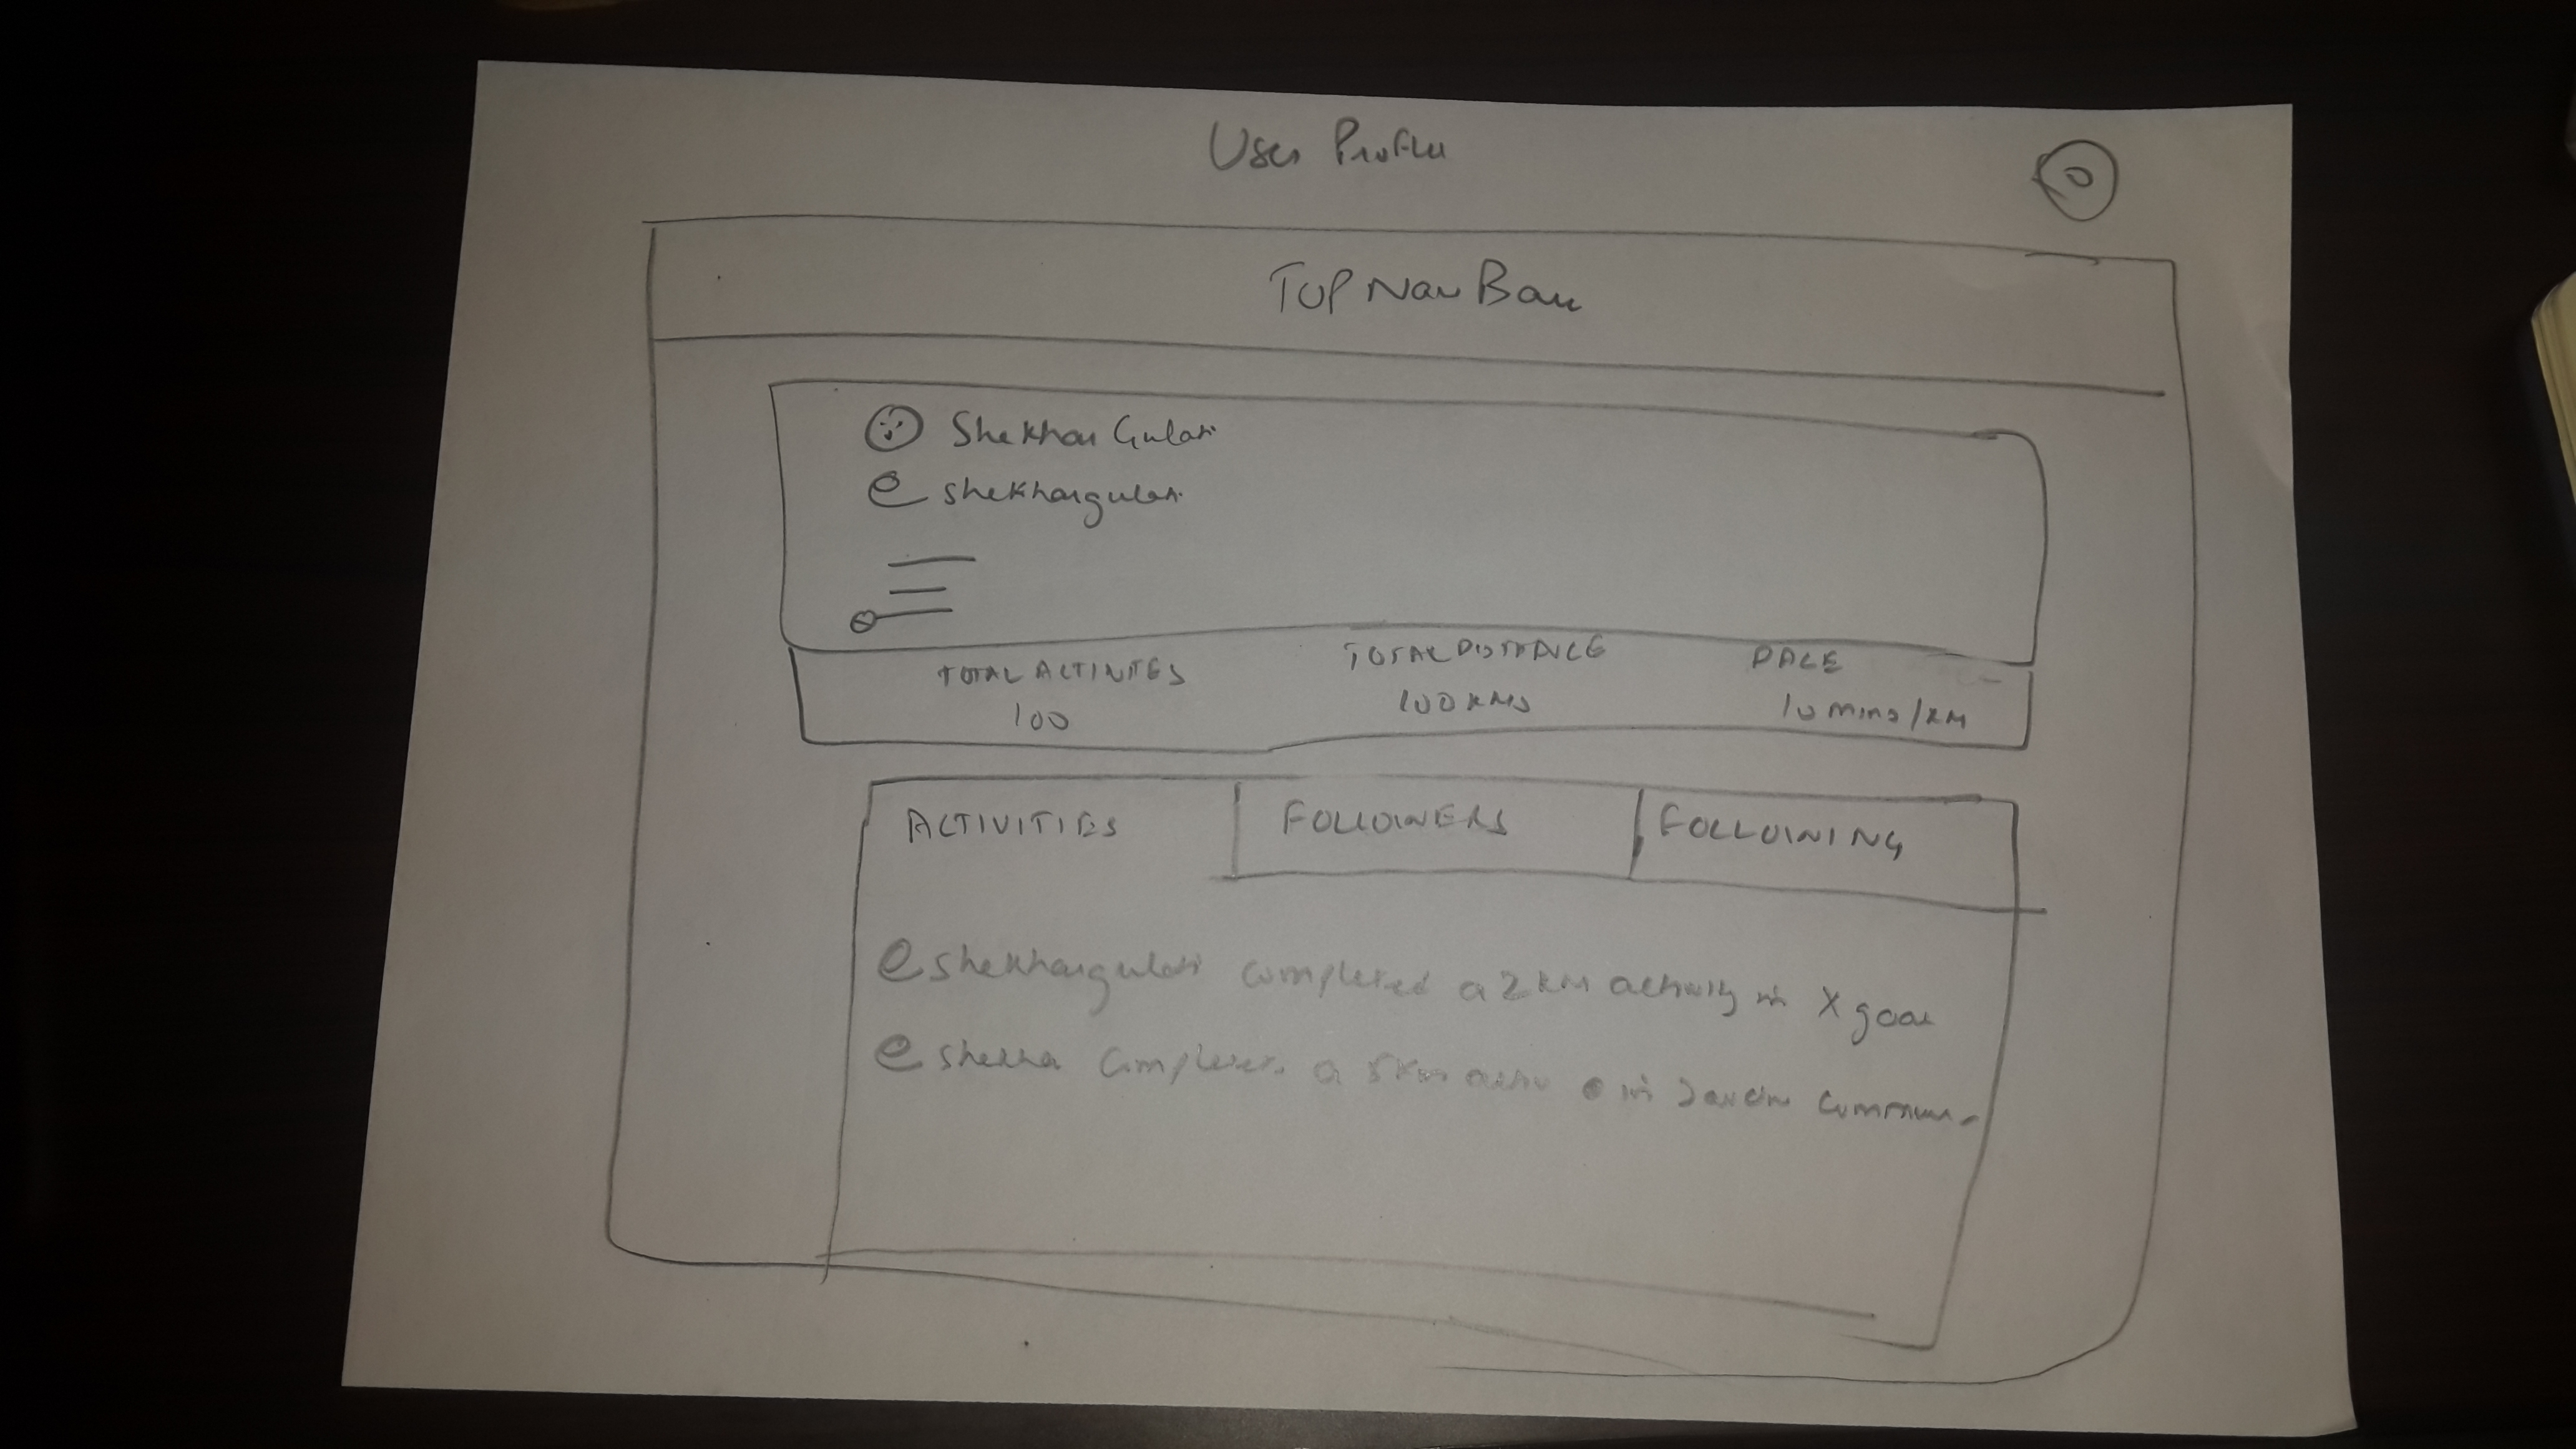 User Profile
TOP Nav Bar
Shekhar Gulati
@ shekhargulati
TOTAL ACTIVITES
100
TOTAL DISTANCE
100 KMS
PACE
10 mins/KM
ACTIVITIES
FOLLOWERS
FOLLOWING
@shekhargulati completed a 2 KM activity in X goal
@shekha completes a 5km in